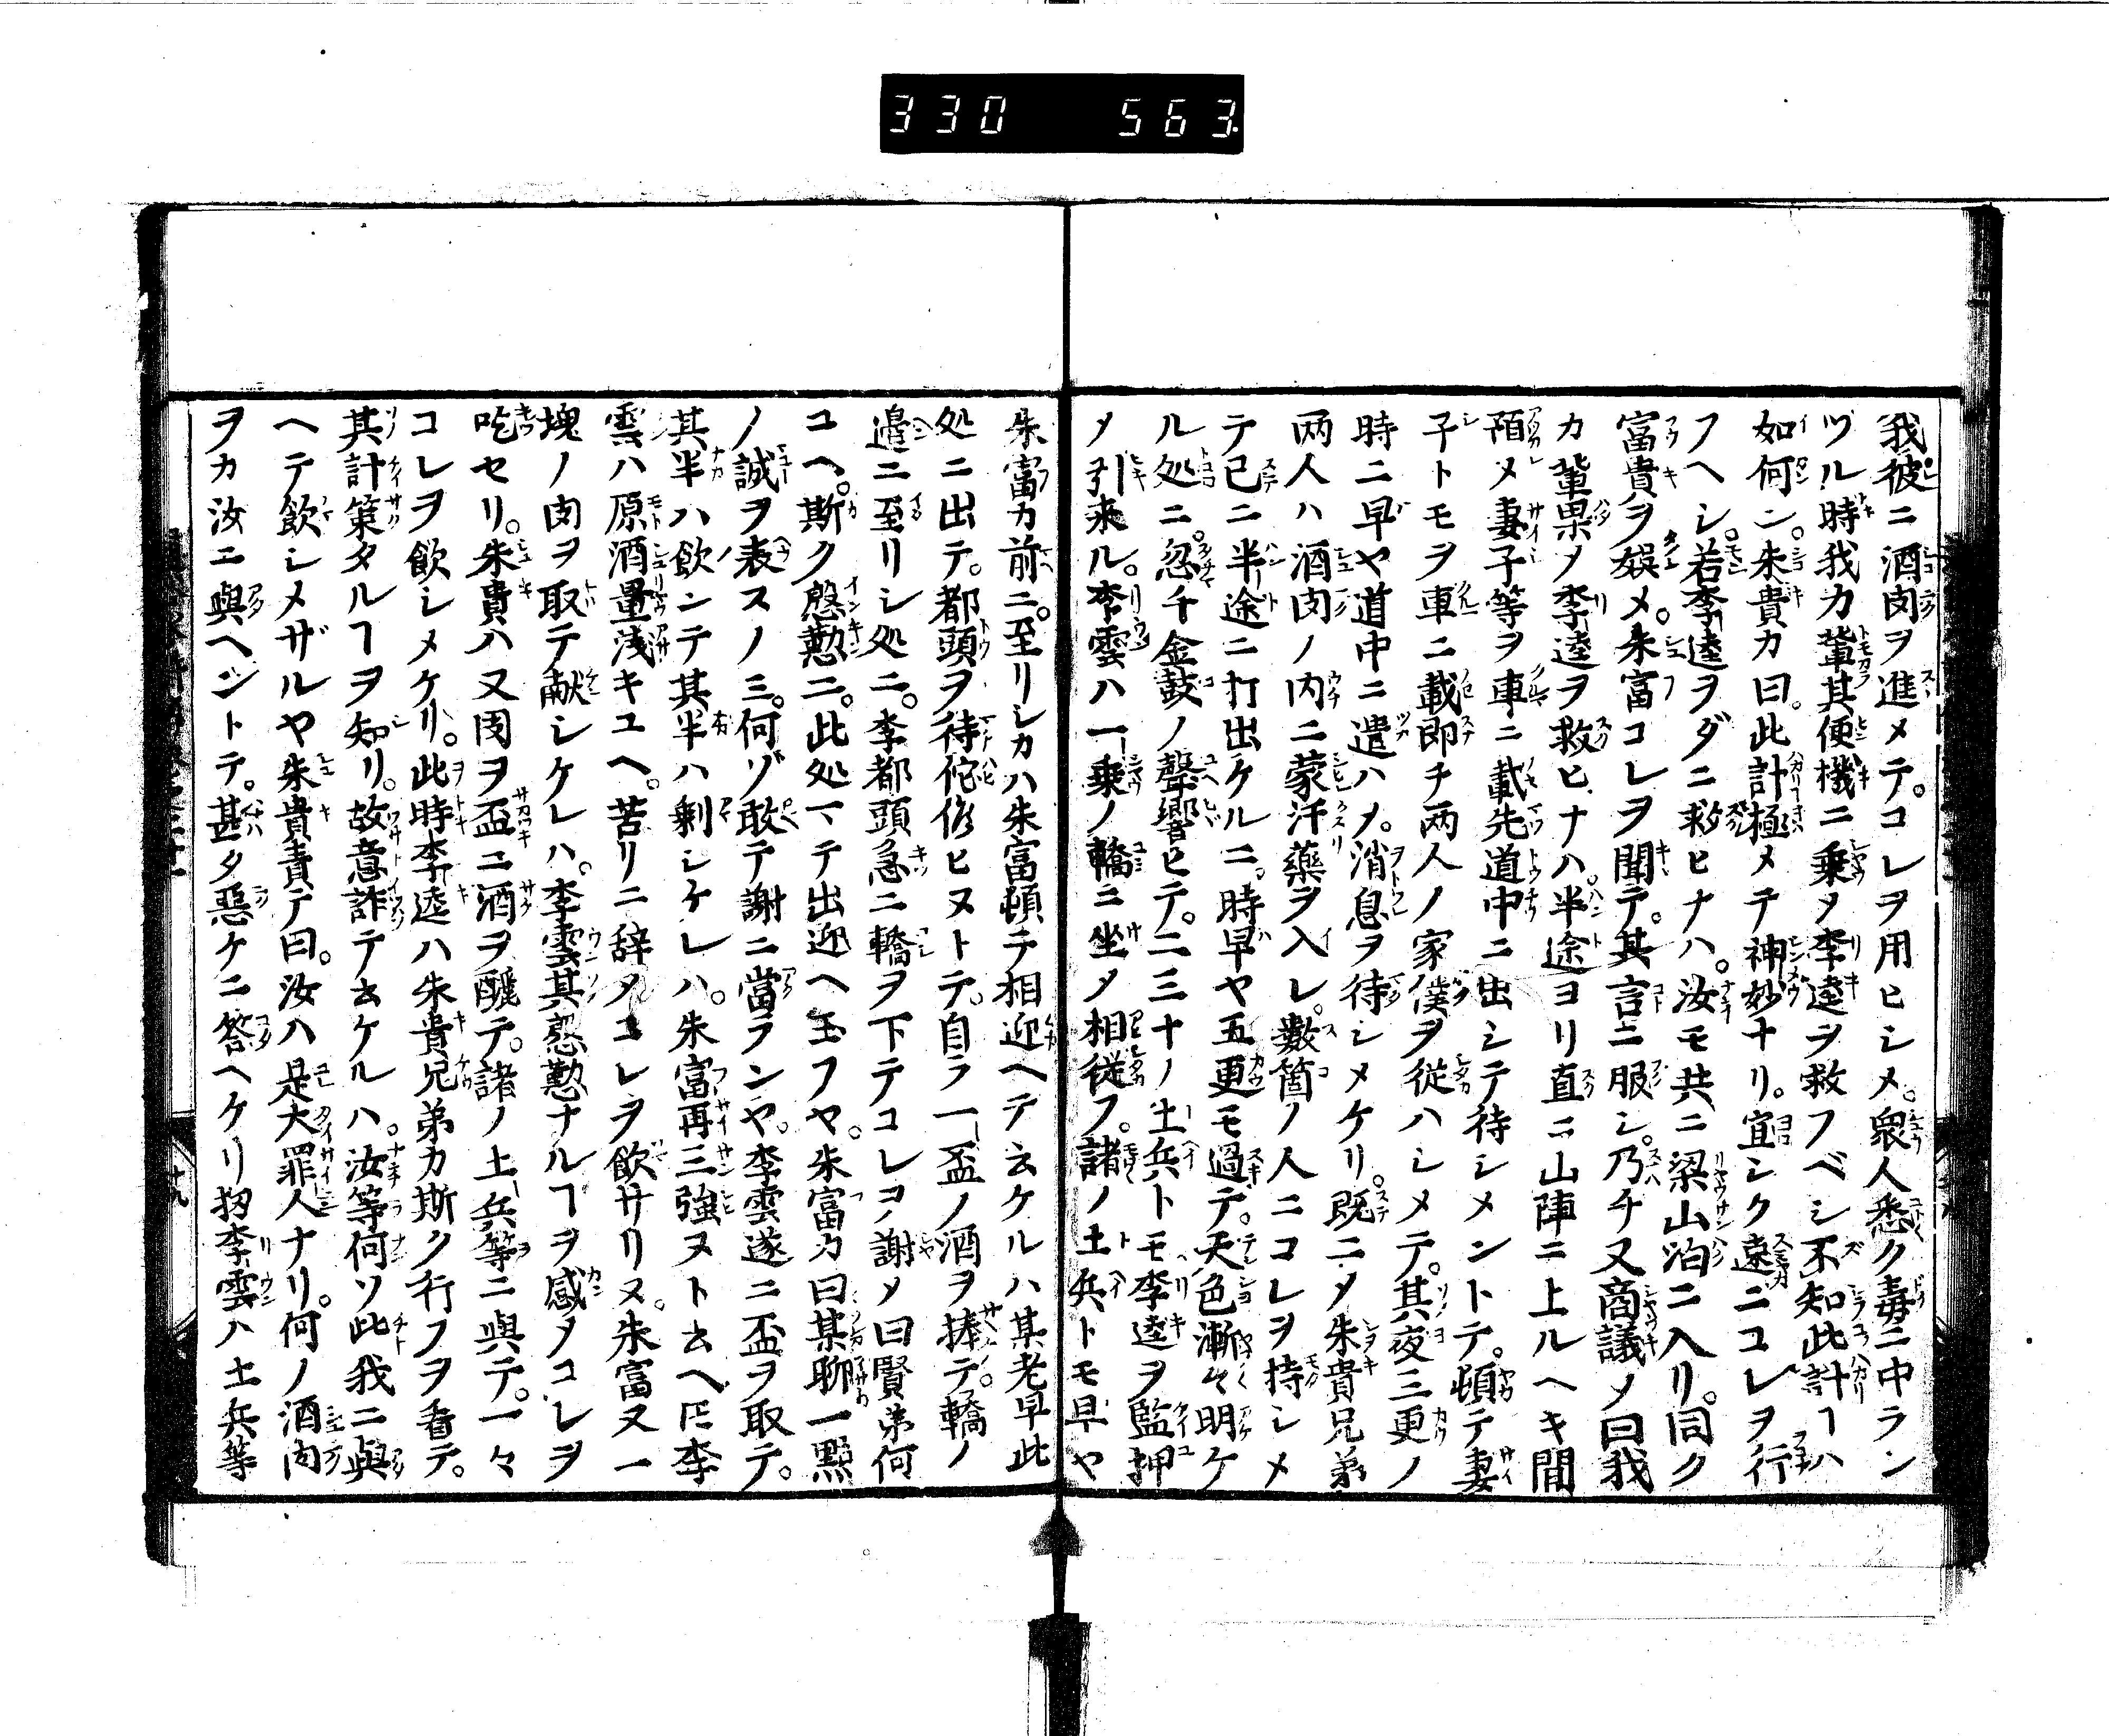 330 563.
我彼ニ酒肉ヲ進メテ。コレヲ用ヒシメ。衆人悉ク毒ニ中ラン
ヅル時我カ輩其便機ニ乗メ李逵ヲ救フベシ不知此計ヿハ
如何ン。朱貴カ曰。此計極メテ神妙ナリ。宜シク速ニコレヲ行
フヘシ。若李逵ヲダニ救ヒナハ。汝モ共ニ梁山泊ニ入リ。同ク
富貴ヲ娯メ。朱富コレヲ聞テ。其言ニ服シ。乃チ又商議メ曰我
カ輩果メ李逵ヲ救ヒナハ。半途ヨリ直ニ山陣ニ上ルヘキ間
預メ妻子等ヲ車ニ載先道中ニ出シテ待シメントテ。頓テ妻
子トモヲ車ニ載即チ两人ノ家僕ヲ従ハシメテ。其夜三更ノ
時ニ早ヤ道中ニ遣ハメ。消息ヲ待シメケリ。既ニメ朱貴兄弟
两人ハ酒肉ノ内ニ蒙汗藥ヲ入レ。數箇ノ人ニコレヲ持シメ
テ已ニ半途ニ打出ケルニ。時早ヤ五更モ過テ。天色漸々明ケ
ル処ニ。忽チ金鼓ノ聲響ヒテ。二三十ノ土兵トモ李逵ヲ監押
メ引来ル。李雲ハ一乗ノ轎ニ坐メ相從フ。諸ノ土兵トモ早ヤ
朱富カ前ニ。至リシカハ朱富頓テ相迎ヘテ云ケルハ某老早此
処ニ出テ。都頭ヲ待侘候ヒヌトテ。自ラ一盃ノ酒ヲ捧テ。轎ノ
邉ニ至リシ処ニ。李都頭急ニ轎ヲ下テコレヲ謝メ曰賢弟何
ユヘ。斯ク慇懃ニ。此処マテ出迎ヘ玉フヤ。朱富カ曰某聊一點
ノ誠ヲ表スノミ。何ゾ敢テ謝ニ當ランヤ。李雲遂ニ盃ヲ取テ。
其半ハ飲ンテ其半ハ剰シケレハ。朱富再三強ヌト云ヘ𪜈李
雲ハ原酒量淺キユヘ。苦リニ辞メコレヲ飲サリヌ。朱富又一
塊ノ肉ヲ取テ献シケレハ。李雲其慇懃ナルヿヲ感メコレヲ
吃セリ。朱貴ハ又肉ヲ盃ニ酒ヲ醺テ。諸ノ土兵等ニ與テ。一々
コレヲ飲シメケリ。此時李逵ハ朱貴兄弟カ斯ク行フヲ看テ。
其計策タルヿヲ知リ。故意詐テ云ケルハ。汝等何ソ此我ニ與
ヘテ飲シメザルヤ朱貴責テ曰。汝ハ是大罪人ナリ。何ノ酒肉
ヲカ汝ニ與ヘントテ。甚タ惡ケニ答ヘケリ扨李雲ハ土兵等
十九